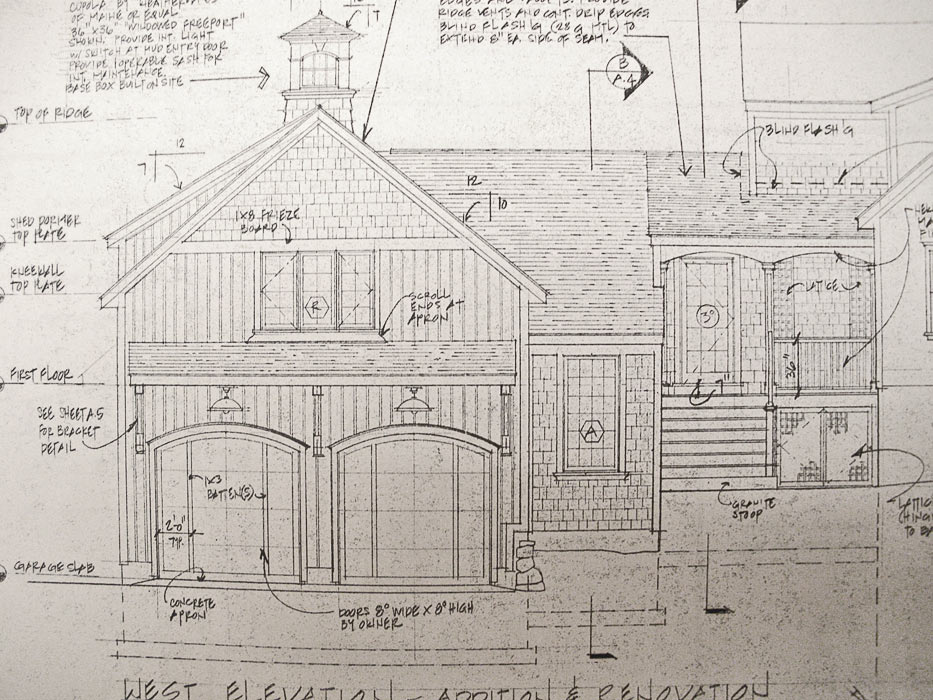 CUPOLA BY WEATHERVANES
OF MAINE OR EQUAL.
36" X 36" "WINDOWED FREEPORT"
SHOWN. PROVIDE INT. LIGHT
W/ SWITCH AT MUD ENTRY DOOR
PROVIDE 1 OPERABLE SASH FOR
INT. MAINTENANCE.
BASE BOX BUILT ON SITE
12
7
PROVIDE
RIDGE VENTS AND CONT. DRIP EDGES
BLIND FLASH'G (28 g MTL) TO
EXTEND 8" EA. SIDE OF SEAM.
B
A.4
TOP OF RIDGE
BLIND FLASH'G
12
7
12
10
SHED DORMER
TOP PLATE
1X8 FRIEZE
BOARD
KNEEWALL
TOP PLATE
LATICE
R
SCROLL
ENDS AT
APRON
3°
3'6"
FIRST FLOOR
7"
SEE SHEET A.5
FOR BRACKET
DETAIL
A
1X3
BATTEN(S)
GRANITE
STOOP
LATTIC
(HING
TO BA
2'-0"
TYP.
GARAGE SLAB
CONCRETE
APRON
DOORS 8° WIDE X 8° HIGH
BY OWNER
WEST ELEVATION - ADDITION & RENOVATION